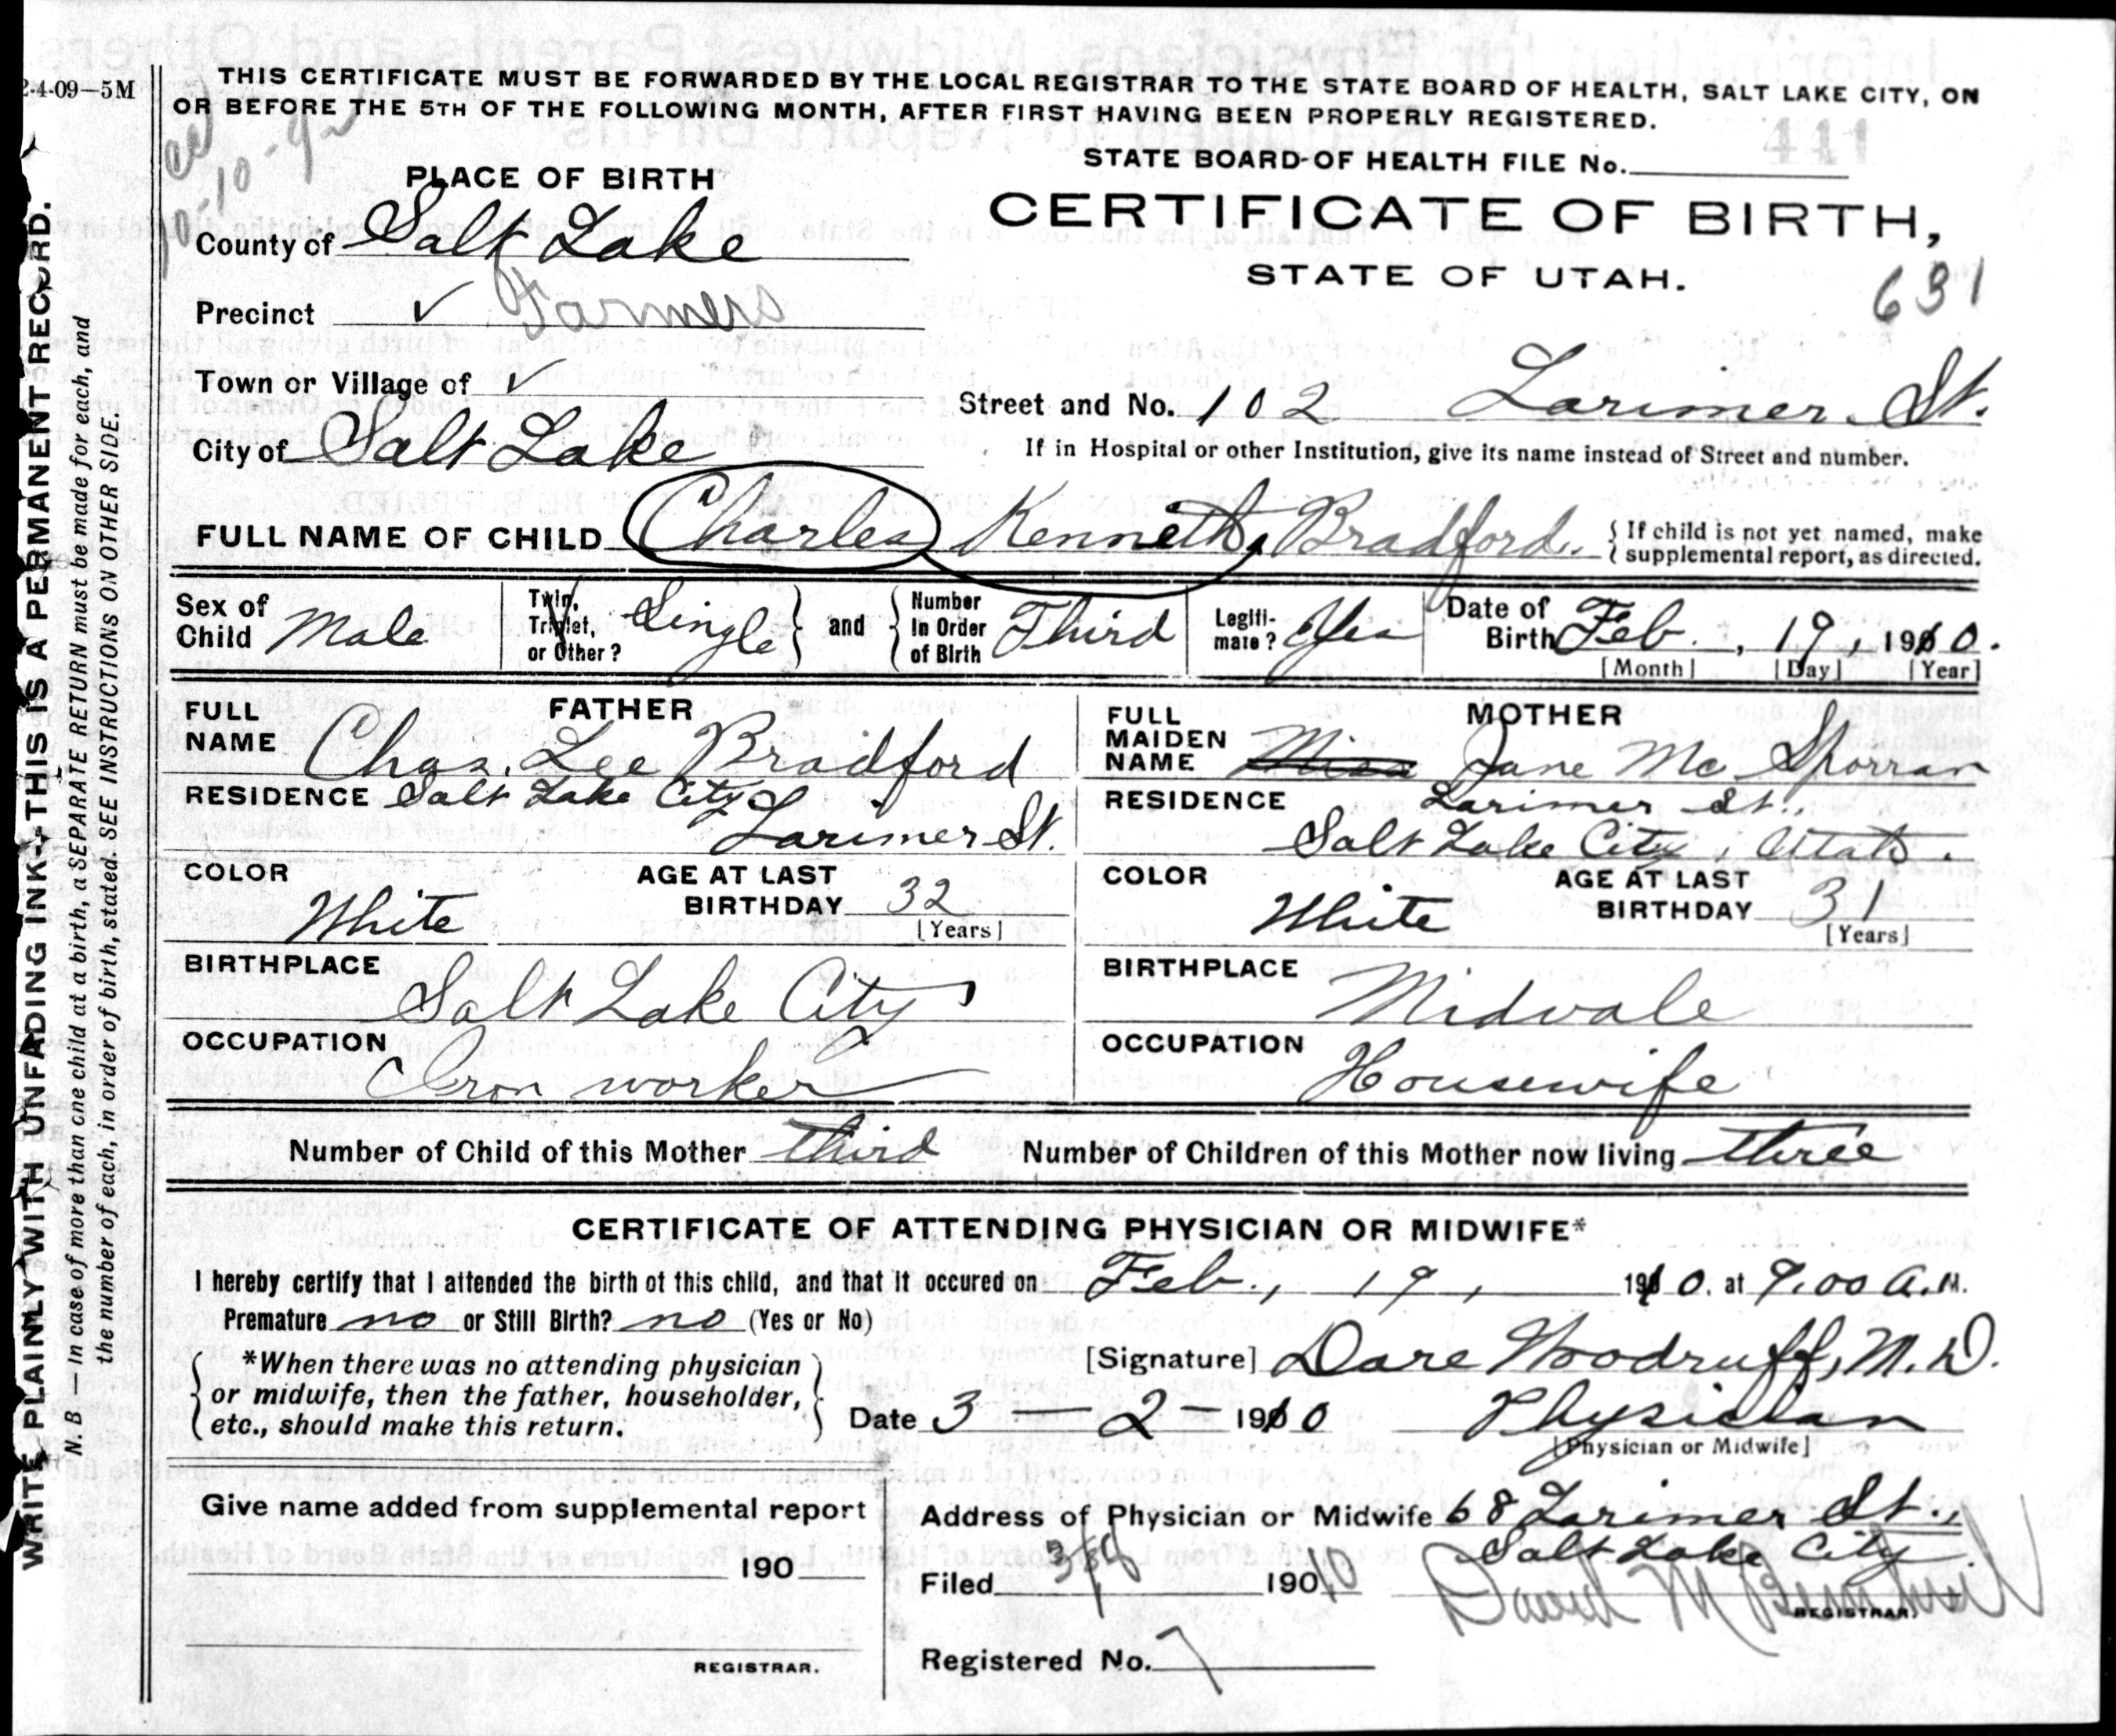 2-4-09—5M
THIS CERTIFICATE MUST BE FORWARDED BY THE LOCAL REGISTRAR TO THE STATE BOARD OF HEALTH, SALT LAKE CITY, ON
OR BEFORE THE 5TH OF THE FOLLOWING MONTH, AFTER FIRST HAVING BEEN PROPERLY REGISTERED.
STATE BOARD OF HEALTH FILE No.
411
PLACE OF BIRTH
CERTIFICATE OF BIRTH,
STATE OF UTAH.
631
County of Salt Lake
Precinct ✓ Farmers
Town or Village of ✓
Street and No. 102 Larimer St.
City of Salt Lake
If in Hospital or other Institution, give its name instead of Street and number.
FULL NAME OF CHILD Charles Kenneth Bradford. { If child is not yet named, make
supplemental report, as directed.
Sex of Child Male Twin, Triplet, or Other? Single } and { Number In Order of Birth Third Legiti-mate? Yes Date of Birth Feb., 19, 1910.
[Month] [Day] [Year]
FATHER
FULL NAME Chas. Lee Bradford
RESIDENCE Salt Lake City
Larimer St.
COLOR White AGE AT LAST BIRTHDAY 32
[Years]
BIRTHPLACE Salt Lake City
OCCUPATION Iron worker
MOTHER
FULL MAIDEN NAME Miss Jane Mc Sporran
RESIDENCE Larimer St.,
Salt Lake City, Utah.
COLOR White AGE AT LAST BIRTHDAY 31
[Years]
BIRTHPLACE Midvale
OCCUPATION Housewife
Number of Child of this Mother third Number of Children of this Mother now living three
CERTIFICATE OF ATTENDING PHYSICIAN OR MIDWIFE*
I hereby certify that I attended the birth of this child, and that it occured on Feb., 19, 1910. at 9.00 A.M.
Premature no or Still Birth? no (Yes or No)
*When there was no attending physician
or midwife, then the father, householder,
etc., should make this return.
[Signature] Dare Woodruff, M.D.
Date 3 — 2 — 1910 Physician
[Physician or Midwife]
Give name added from supplemental report
190
REGISTRAR.
Address of Physician or Midwife 68 Larimer St.,
Salt Lake City.
Filed 190
REGISTRAR.
Registered No. 7
WRITE PLAINLY WITH UNFADING INK—THIS IS A PERMANENT RECORD.
N. B.—In case of more than one child at birth, a SEPARATE RETURN must be made for each, and
the number of each, in order of birth, stated. SEE INSTRUCTIONS ON OTHER SIDE.